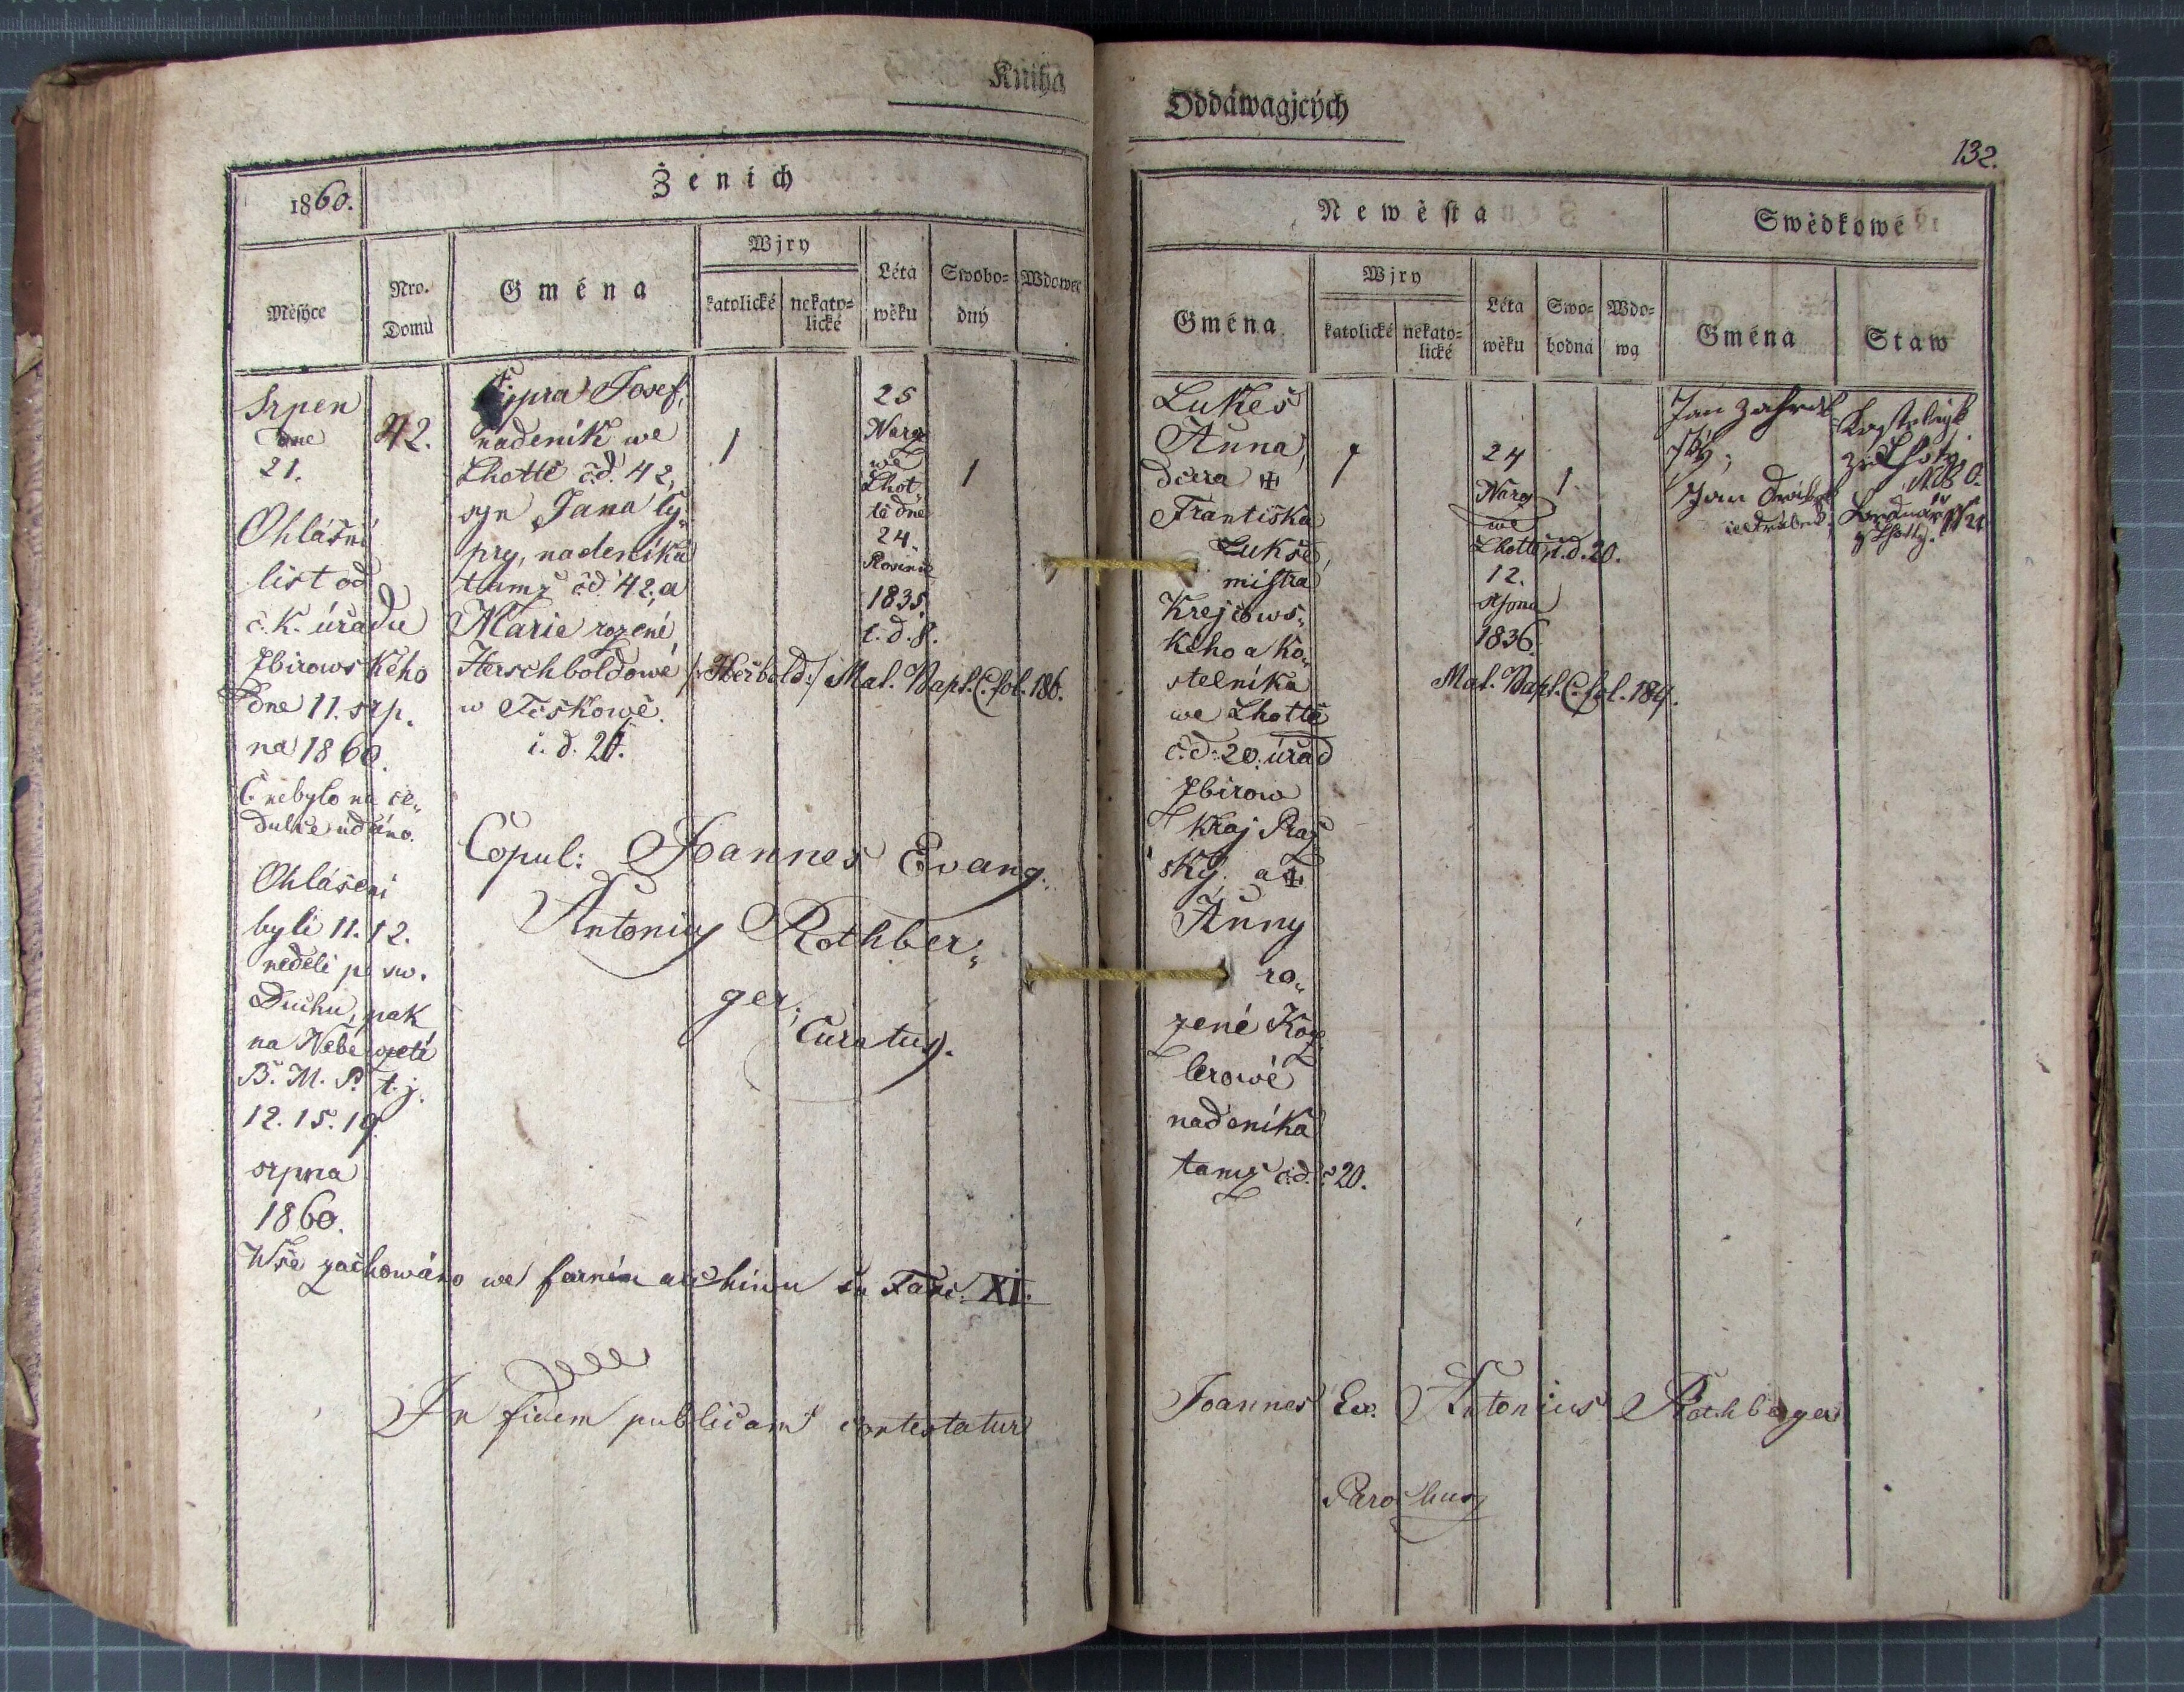 Kniha
1860.
Ženich
Měsýce
Nro. Domů
Gména
Wjry
katolické
nekato=
lické
Léta
wěku
Swobo=
dný
Wdowec
Srpen
dne
21.
Ohlášní
list od
c. k. úřadu
Zbirowského
dne 11. srp.
na 1860.
Č nebylo na ce„
dulce udáno.
Ohlášeni
byli 11. 12.
neděli po sw.
Duchu, pak
na Nebewzetí
B. M. P. t. j.
12. 15. 19.
srpna
1860.
42.
Cypra Josef,
nadeník we
Lhottě č.d. 42,
syn Jana Cy„
pry, nadeníka
tamž č.d. 42, a
Marie rozené
Herschboldowé /:Heřbold:/ Mat. Bapt. C. fol. 186.
w Těškowě.
č. d. 21.
1
25
Naroz
we
Lhot„
tě dne
24.
1835.
č. d. 8.
1
Copul: Joannes Evang.
Antonius Rothber„
ger,
Curatus.
Wše zachowáno we farním archivu in Fasc. XI.
In fidem publicam contestatur
Oddáwagjcých
132.
Newěsta
Swědkowé
Gména
Wjry
katolické
nekato=
lické
Léta
wěku
Swo=
bodná
Wdo=
wa
Gména
Staw
Lukeš
Anna,
dcera
Františka
Lukše,
mistra
krejčows„
kého a ko„
stelníka
we Lhottě
č.d. 20. úřad
Zbirow
kraj Praž
ský. a
Anny
ro„
zené Koz
lerowé
nadeníka
tamž č.d. 20.
1
24
Naroz
we
Lhottě č.d. 20.
12.
1836.
Mat. Bapt. C. fol. 184.
1
Jan
Jan
Kostelník
ze Lhoty
z Lhotty.
Joannes Ev. Antonius Rothberger
Parochus